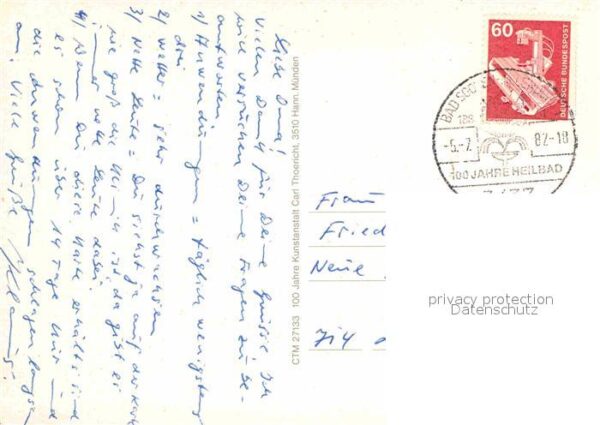 Liebe Oma!
Vielen Dank für Deine Grüße. Ich
will versuchen Deine Fragen zu be-
antworten
1) Anwendungen = täglich wenigstens
drei
2) Wetter = sehr durchwachsen
3) Nette Leute = Du siehst ja auf der Karte
wie groß die Uhr ist, da gibt es
immer nette Leute dabei.
4) Wenn Du diese Karte erhältst sind
es schon über 14 Tage hier und
die Anwendungen schlagen langsam
an. Viele Grüße
Klaus
CTM 27133 100 Jahre Kunstanstalt Carl Thoericht, 3510 Hann. Münden
60
DEUTSCHE BUNDESPOST
BAD SOO
-5.-7. 82-18
100 JAHRE HEILBAD
Frau
Fried
Neue
privacy protection
Datenschutz